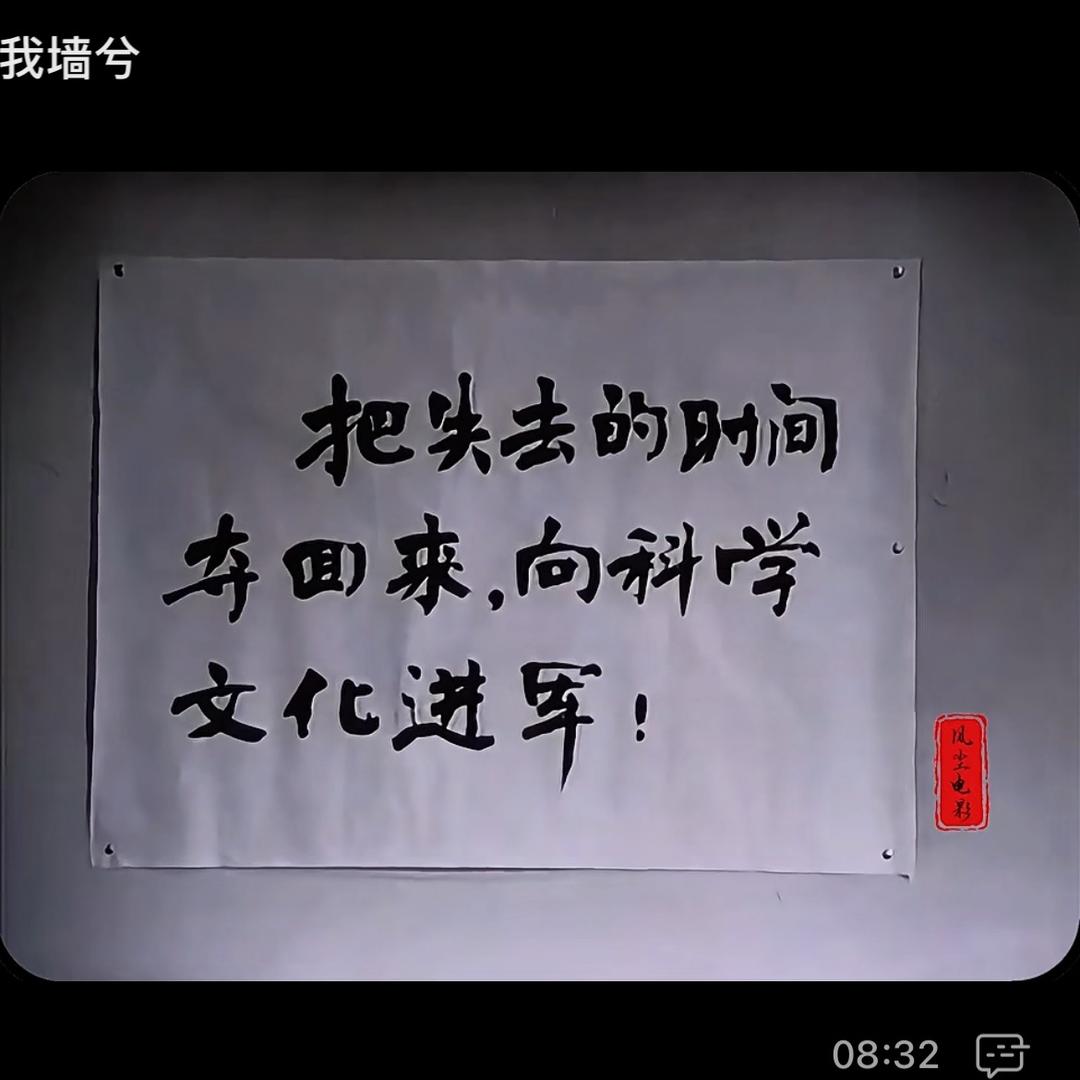 我墙兮
把失去的时间
夺回来,向科学
文化进军!
风尘电影
08:32